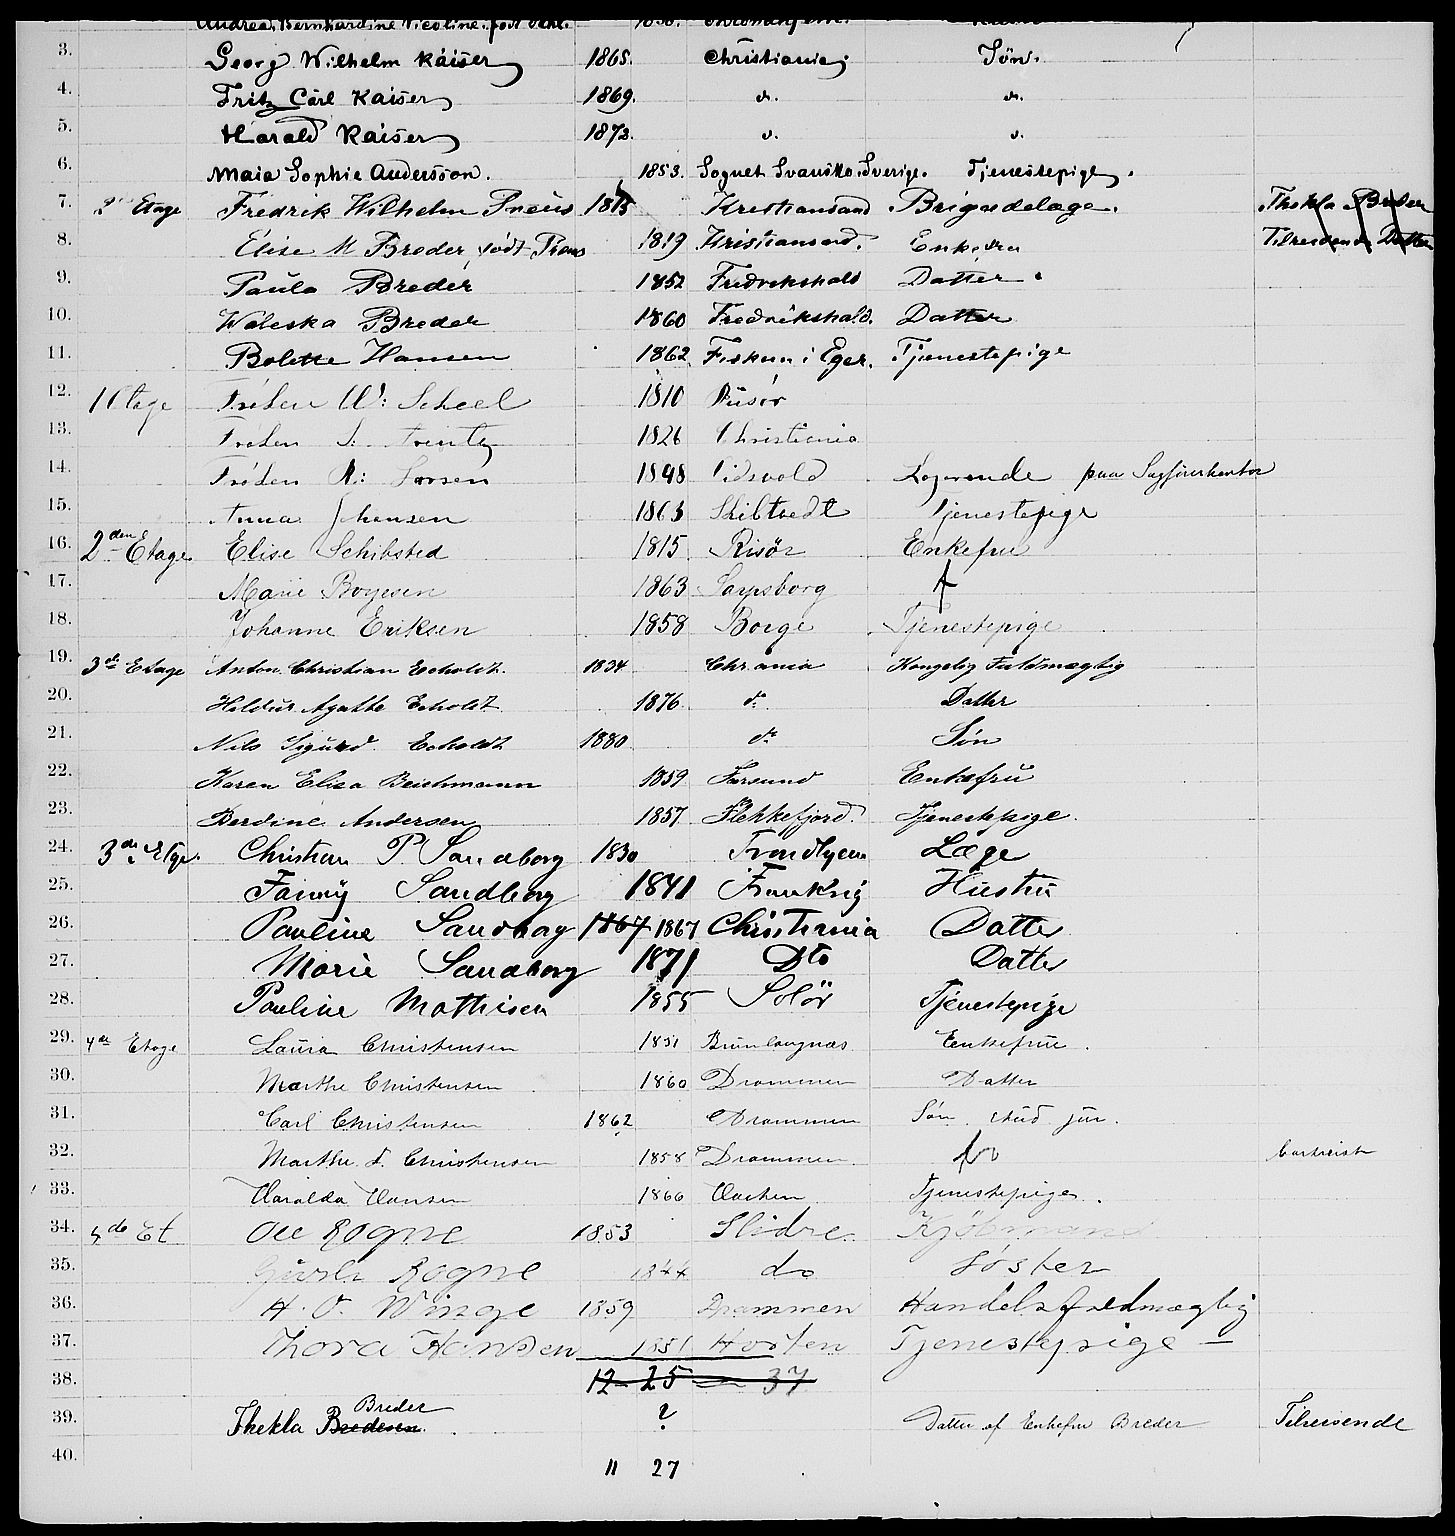 Andrea Bernhardine Nicoline
3. Georg Wilhelm Kaiser 1865. Christiania. Søn.
4. Fritz Carl Kaiser 1869. d. d.
5. Harald Kaiser 1873. d. d.
6. Maia Sophie Andersson. 1853. Sognet Sverige. Tjenestepige.
7. 2den Etage Fredrik Wilhelm 1815 Kristiansand Brigadelæge. Thekla Breder
8. Elise M Breder, født 1819 Kristiansand. Enkefru Tilreisende Datter
9. Paula Breder 1852 Fredrikshald Datter
10. Waleska Breder 1860 Fredrikshald. Datter
11. Bolette Hansen 1862 Fiskum i Eger. Tjenestepige
12. 1 Etage Frøken W: Scheel 1810 Risør
13. Frøken 1826 Christiania
14. Frøken 1848 Eidsvold Logerende paa Sagførerkontor
15. Anna Johansen 1863 Skibtvedt Tjenestepige
16. 2den Etage Elise Schibsted 1815 Risör Enkefru
17. Marie Boyesen 1863 Sarpsborg
18. Johanne Eriksen 1858 Borge Tjenestepige
19. 3de Etage Anton Christian Eckholdt. 1834 Chr.ania Kongelig Fuldmægtig
20. Agathe Echoldt 1876. do Datter
21. Nils Sigurd Echoldt 1880 do Søn
22. Karen Elisa Beichmann 1859 Farsund Enkefru
23. Berdine Andersen 1857 Flekkefjord. Tjenestepige.
24. 3de Etge. Christian P Sandberg 1830 Trondhjem Læge
25. Fanny Sandberg 1841 Frankrig Hustru
26. Pauline Sandberg 1867 1867 Christiania Datter
27. Marie Sandberg 1871 Dto Datter
28. Pauline Mathisen 1855 Solör Tjenestepige
29. 4de Etage Laura Christensen 1831 Brunlaugnæs Enkefrue.
30. Marthe Christensen 1860 Drammen Datter
31. Carl Christensen 1862 Drammen Søn stud jur.
32. Marthe Christensen 1858 Drammen
33. Haralda Hansen 1866 Tjenestepige.
34. 4de Et Ole Rogne 1853 Slidre Kjøbmand
35. Rogne 1844 do Søster
36. H. O. Winge 1859 Drammen Handelsfuldmægtig
37. Thora Hansen 1851 Horten Tjenestepige —
38. 12 - 25 — 37
39. Thekla Bredesen Breder ? Datter af Enkefru Breder Tilreisende
40.
11 27